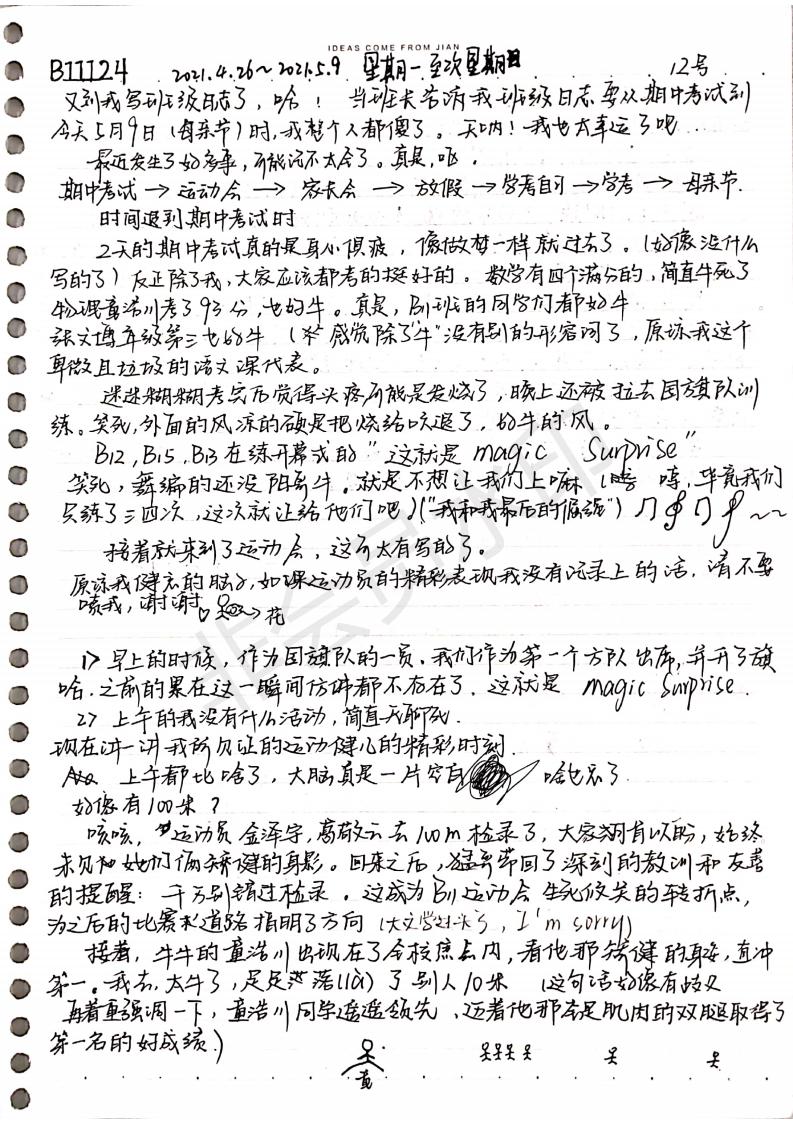 IDEAS COME FROM JIAN
B11124 2021.4.26~2021.5.9 星期一至次星期日 12号
又到我写班级日志了，哈！当班长告诉我班级日志要从期中考试到
今天5月9日（母亲节）时，我整个人都傻了。天呐！我也太幸运了吧
最近发生了好多事，可能记不太全了。真是，唯。
期中考试→运动会→家长会→放假→学考自习→学考→母亲节.
时间退到期中考试时
2天的期中考试真的是身心俱疲，像做梦一样就过去了。（好像没什么
写的了）反正除了我，大家应该都考的挺好的。数学有四个满分的，简直牛死了
物理童浩川考了93分，也好牛。真是，B11班的同学们都好牛
张文博年级第三也好牛（感觉除了"牛"没有别的形容词了，原谅我这个
卑微且垃圾的语文课代表。
迷迷糊糊考完后觉得头疼可能是发烧了，晚上还被拉去国旗队训
练。笑死，外面的风凉的硬是把烧给吹退了，好牛的风。
B12，B15，B13在练开幕式的"这就是magic surprise"
笑死，舞编的还没阳哥牛。就是不想让我们上嘛（哼 哼，毕竟我们
只练了三四次，这次就让给他们吧）（"我和我最后的倔强"）
接着就来到了运动会，这可太有写的了。
原谅我健忘的脑子，如果运动员的精彩表现我没有记录上的话，请不要
喷我，谢谢→花
1> 早上的时候，作为国旗队的一员，我们作为第一个方队出席，并开了旗
哈，之前的累在这一瞬间仿佛都不存在了，这就是 magic surprise.
2> 上午的我没有什么活动，简直无聊死.
现在讲一讲我所见证的运动健儿的精彩时刻.
上午都比啥了，大脑真是一片空白 啥也忘了
好像有100米？
咳咳，运动员金泽宇，葛敬云去100m检录了，大家翘首以盼，始终
未见她们俩矫健的身影。回来之后，带回了深刻的教训和友善
的提醒：千万别错过检录。这成为B11运动会生死攸关的转折点，
为之后的比赛道路指明了方向（大文学过头了，I'm sorry）
接着，牛牛的童浩川出现在了全校焦点内，看他那矫健的身姿，直冲
第一。我去，太牛了，足足落（là）了别人10米（这句话好像有歧义
再着重强调一下，童浩川同学遥遥领先，迈着他那充是肌肉的双腿取得了
第一名的好成绩.）
童
非会员水印